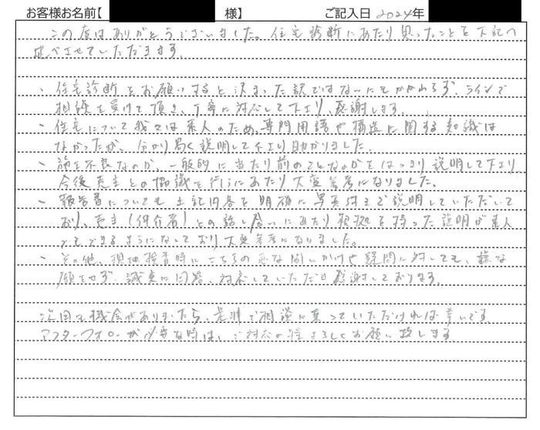 お客様お名前【 様】 ご記入日 2024年
この度はありがとうございました。住宅診断にあたり思ったことを下記へ
述べさせていただきます。
・住宅診断をお願いすると決まった訳ではないにもかかわらず、ラインで
相談を受けて頂き、丁寧に対応して下さり、感謝します。
・住宅について我々は素人のため、専門用語や構造に関する知識は
なかったが、分かり易く説明して下さり助かりました。
・施工不良なのか、一般的に当たり前のことなのかをはっきり説明して下さり
今後売主との協議を行うにあたり大変参考になりました。
・報告書についても上記内容を明確に写真付きで説明していただいて
おり、売主(仲介者)との話し合いにあたり根拠を持った説明が素人
でもできるようになっており大変参考になりました。
・その他、現地検査時にこちらの急な問いかけや疑問に対しても、嫌な
顔をせず、誠実に回答、対応していただき感謝しております。
次回も機会がありましたら、是非ご相談に乗っていただければ幸いです
アフターフォローが必要な時は、ご対応の程よろしくお願い致します